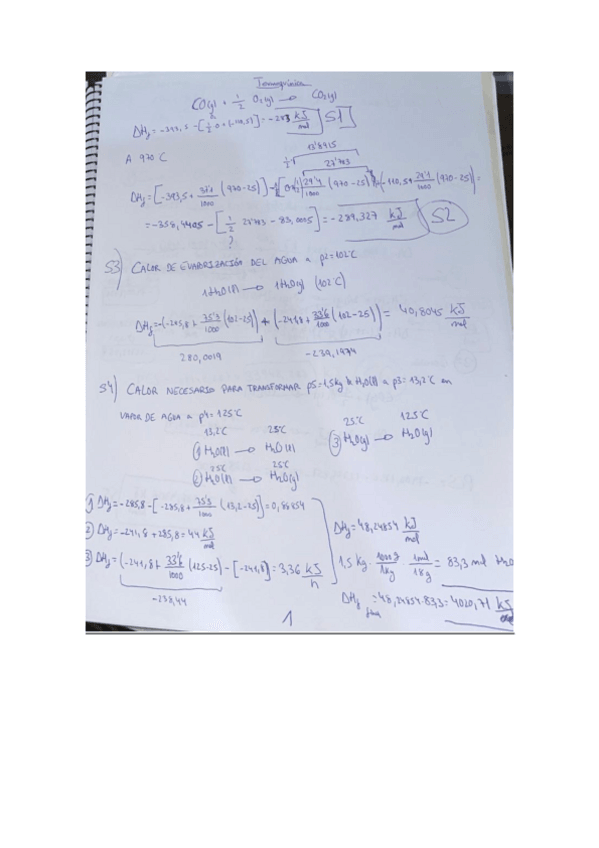 Termoquímica
CO(g) + 1/2 O2(g) → CO2(g)
ΔHf = -393,5 - [1/2 · 0 + (-110,5)] = -283 kJ/mol S1
A 970 C
13'8915
1/2 · 27'783
ΔHf = [-393,5 + 37'1/1000 (970-25)] - [1/2 (0 + 29'4/1000 (970-25)) + (-110,5 + 29'1/1000 (970-25)] =
= -358,4405 - [1/2 27'783 - 83,0005] = -289,327 kJ/mol S2
?
S3) CALOR DE EVAPORIZACIÓN DEL AGUA a p2=102ºC
1H2O(l) → 1H2O(g) (102ºC)
ΔHf = -(-285,8 + 75'3/1000 (102-25)) + (-241,8 + 33'6/1000 (102-25)) = 40,8045 kJ/mol
280,0019 -239,1974
S4) CALOR NECESARIO PARA TRANSFORMAR p5=1,5kg de H2O(l) a p3=13,2ºC en
VAPOR DE AGUA a p4=125ºC
13,2ºC 25ºC 25ºC 125ºC
① H2O(l) → H2O(l) ③ H2O(g) → H2O(g)
25ºC 25ºC
② H2O(l) → H2O(g)
1) ΔHf = -285,8 - [-285,8 + 75'3/1000 (13,2-25)] = 0,88854
2) ΔHf = -241,8 + 285,8 = 44 kJ/mol
3) ΔHf = (-241,8 + 33'6/1000 (125-25)) - [-241,8] = 3,36 kJ/n
-238,44
ΔHf = 48,24854 kJ/mol
1,5 kg · 1000g/1kg · 1mol/18g = 83,3 mol H2O
ΔHf = 48,24854 · 83,3 = 4020,71 kJ
1